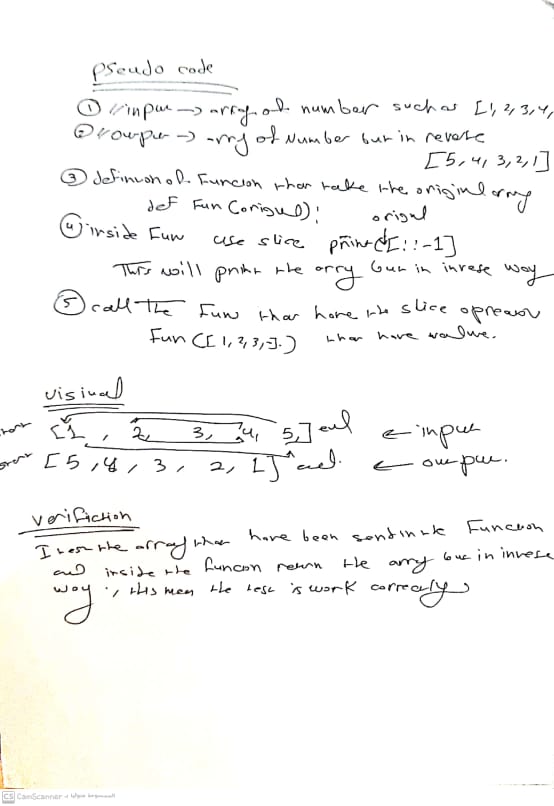 Pseudo code
① //input → array of number such as [1, 2, 3, 4,
② output → array of Number but in reverse
[5, 4, 3, 2, 1]
③ definition of Function that take the original array
def Fun (original): original
④ inside Fun use slice print [::-1]
This will print the array but in invese way
⑤ call The Fun that have the slice opreator
Fun ([1, 2, 3, -].) that have value.
visiual
[1, 2, 3, 4, 5,] end ← input
[5, 4, 3, 2, 1] end. ← output.
verifiction
I test the array that have been sent in the Function
and inside the funcon return the array but in invese
way, this men the test is work correctly
CS CamScanner